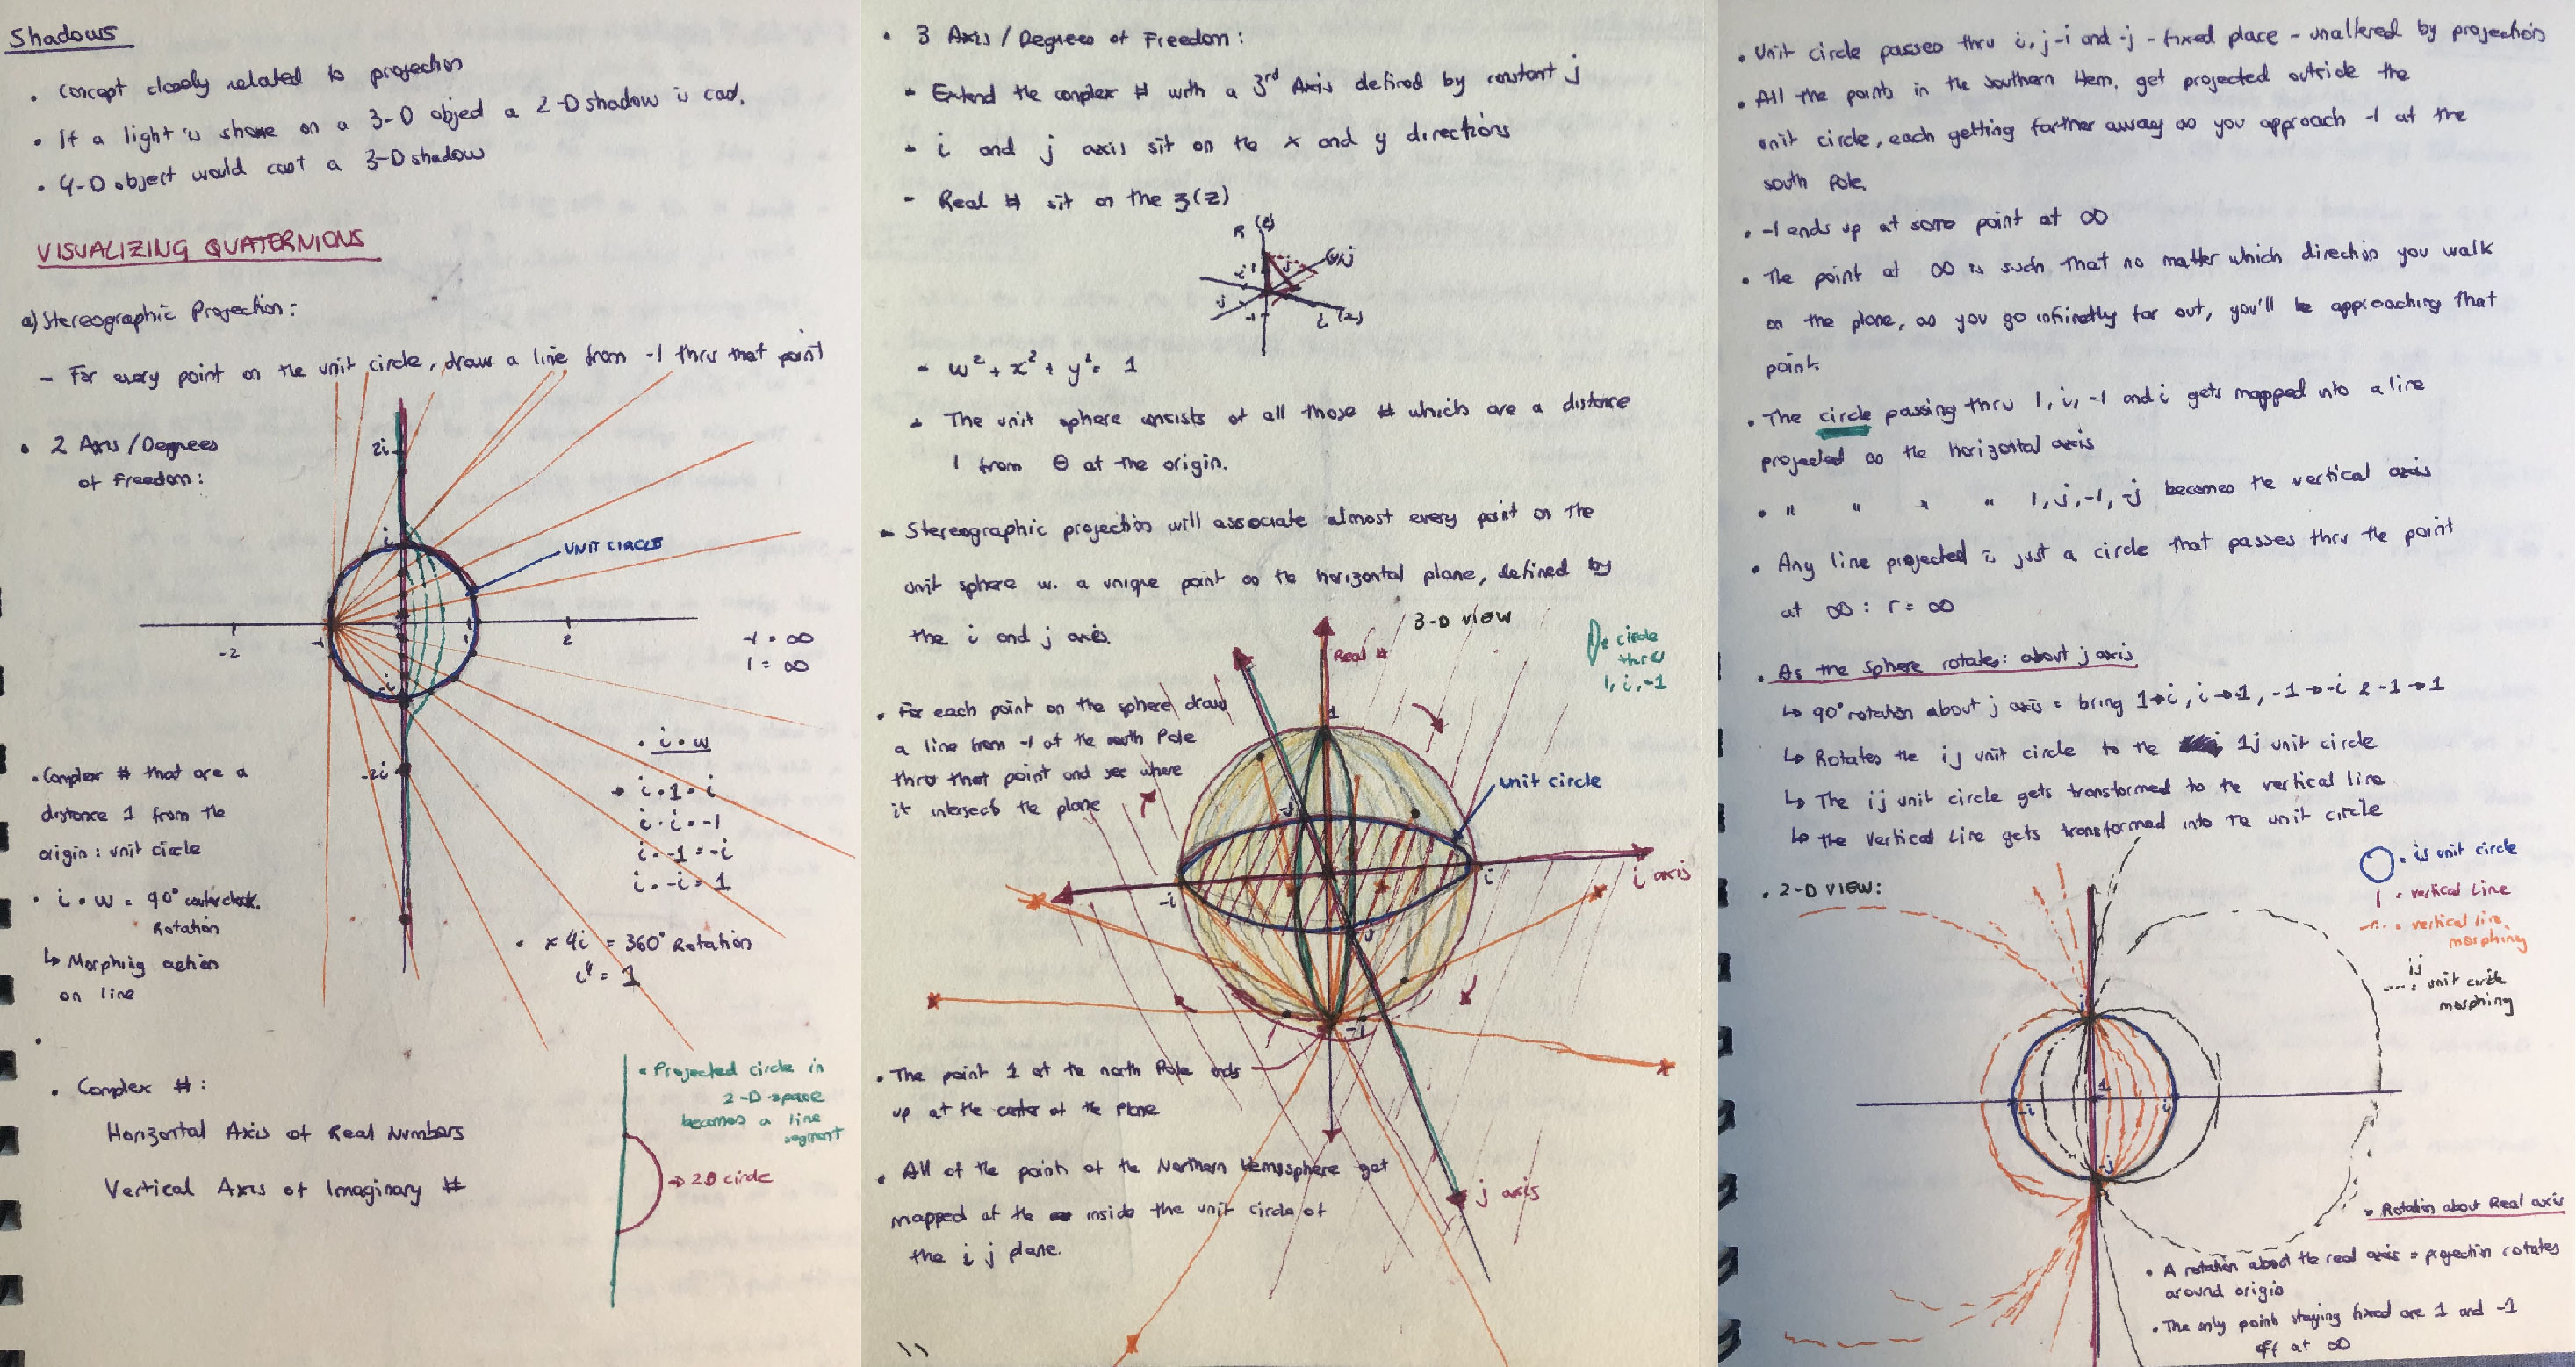 Shadows
• Concept closely related to projection
• If a light is shone on a 3-D object a 2-D shadow is cast.
• 4-D object would cast a 3-D shadow
VISUALIZING QUATERNIONS
a) Stereographic Projection:
- For every point on the unit circle, draw a line from -1 thru that point
• 2 Axis/Degrees
of Freedom:
2i
i
UNIT CIRCLE
-2
-1
1
2
-1 = ∞
1 = ∞
-i
-2i
• i • w
→ i • 1 = i
i • i = -1
i • -1 = -i
i • -i = 1
• x 4i = 360° Rotation
i⁴ = 1
• Complex # that are a
distance 1 from the
origin: unit circle
• i • w = 90° counterclock.
Rotation
↳ Morphing action
on line
• Complex #:
Horizontal Axis of Real Numbers
Vertical Axis of Imaginary #
• Projected circle in
2-D space
becomes a line
segment
→ 2D circle
• 3 Axis/Degrees of Freedom:
- Extend the complex # with a 3rd Axis defined by constant j
- i and j axis sit on the x and y directions
- Real # sit on the ʒ(z)
R (z)
(y) j
i (x)
-1
- w² + x² + y² = 1
• The unit sphere consists of all those # which are a distance
1 from 0 at the origin.
- Stereographic projection will associate almost every point on the
unit sphere w. a unique point on the horizontal plane, defined by
the i and j axis.
3-D view
: circle
thru
1, i, -1
Real #
1
• For each point on the sphere draw
a line from -1 at the south Pole
thru that point and see where
it intersects the plane
unit circle
-j
-i
i
i axis
j
-1
• The point 1 at the north Pole ends
up at the center of the plane
j axis
• All of the points of the Northern Hemisphere get
mapped at the inside the unit circle of
the i j plane.
• Unit circle passes thru i, j -i and -j - fixed place - unaltered by projection
• All the points in the Southern Hem. get projected outside the
unit circle, each getting farther away as you approach -1 at the
south Pole.
• -1 ends up at some point at ∞
• The point at ∞ is such that no matter which direction you walk
on the plane, as you go infinitely far out, you'll be approaching that
point.
• The circle passing thru 1, i, -1 and i gets mapped into a line
projected as the horizontal axis
• " " " " 1, j, -1, -j becomes the vertical axis
• Any line projected is just a circle that passes thru the point
at ∞ : r = ∞
• As the sphere rotates: about j axis
↳ 90° rotation about j axis = bring 1→i, i→-1, -1→-i & -1→1
↳ Rotates the ij unit circle to the 1j unit circle
↳ The ij unit circle gets transformed to the vertical line
↳ the vertical Line gets transformed into the unit circle
• 2-D VIEW:
= is unit circle
= vertical line
= vertical line
morphing
ij
: unit circle
morphing
j
1
-i
i
-j
• Rotation about Real axis
• A rotation about the real axis = projection rotates
around origin
• The only points staying fixed are 1 and -1
off at ∞